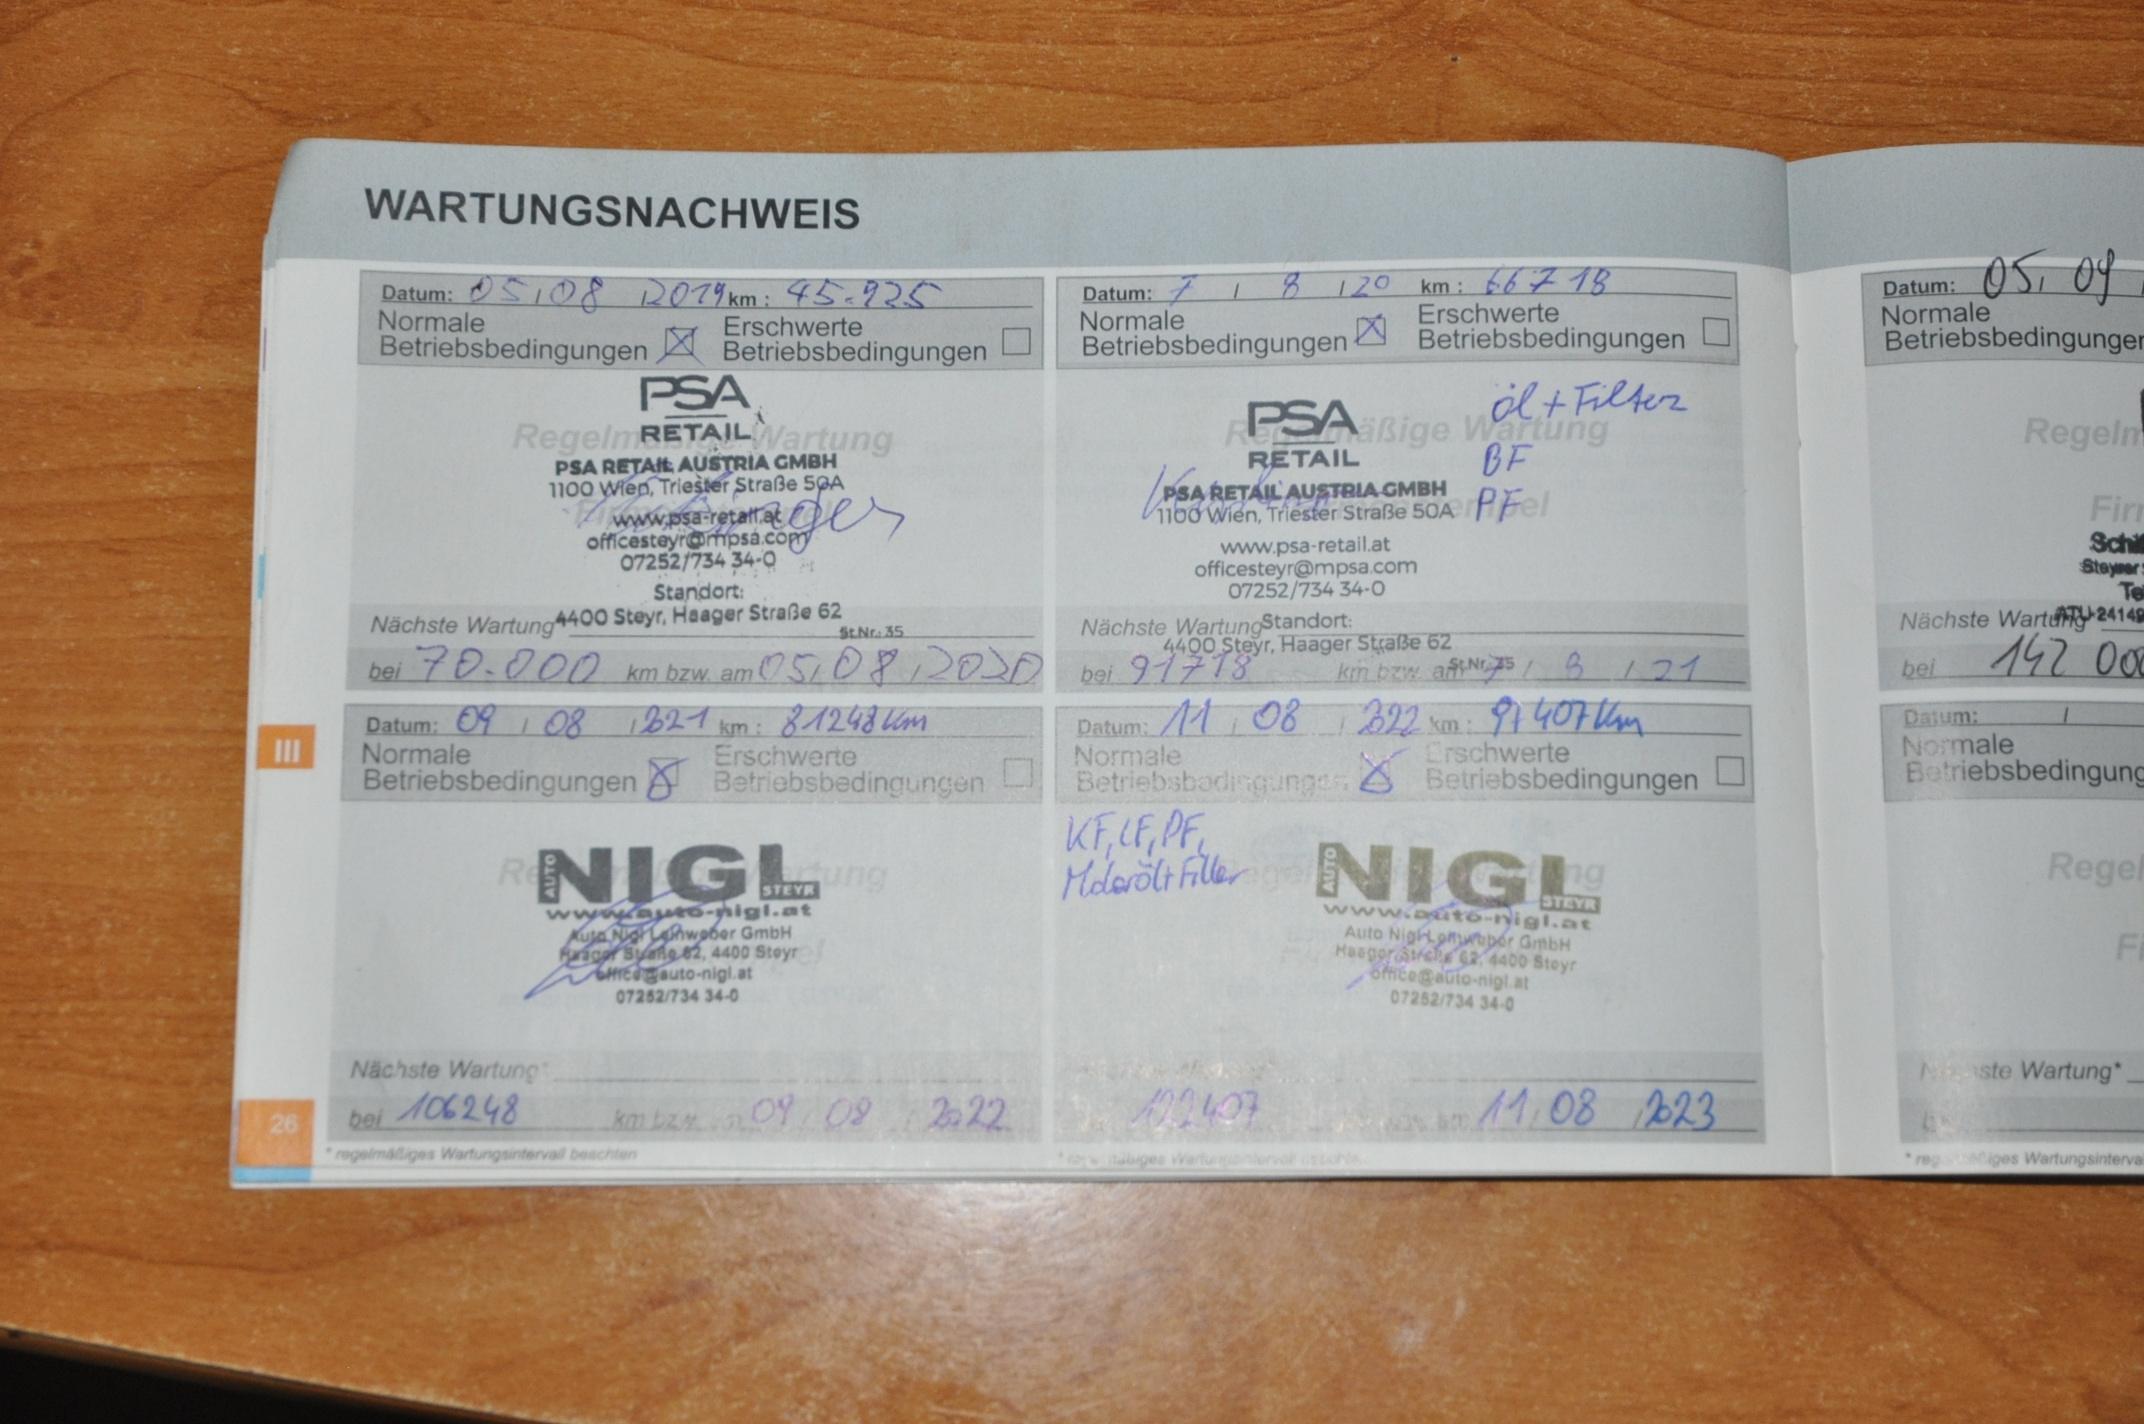 WARTUNGSNACHWEIS
Datum: 05 / 08 / 2019 km : 45.925
Normale
Betriebsbedingungen
Erschwerte
Betriebsbedingungen
PSA
RETAIL
Regelmäßige Wartung
PSA RETAIL AUSTRIA GMBH
1100 Wien, Triester Straße 50A
www.psa-retail.at
officesteyr@mpsa.com
07252/734 34-0
Standort:
4400 Steyr, Haager Straße 62
St.Nr.: 35
Nächste Wartung*
bei 70.000 km bzw. am 05 / 08 / 2020
Datum: 7 / 8 / 20 km : 66718
Normale
Betriebsbedingungen
Erschwerte
Betriebsbedingungen
PSA
RETAIL
Regelmäßige Wartung
öl + Filter
BF
PF
PSA RETAIL AUSTRIA GMBH
1100 Wien, Triester Straße 50A
www.psa-retail.at
officesteyr@mpsa.com
07252/734 34-0
Standort:
4400 Steyr, Haager Straße 62
St.Nr.: 35
Nächste Wartung
bei 91718 km bzw. am 7 / 8 / 21
III
Datum: 09 / 08 / 2021 km : 81248 km
Normale
Betriebsbedingungen
Erschwerte
Betriebsbedingungen
AUTO NIGL STEYR
www.auto-nigl.at
Auto Nigl Leinweber GmbH
Haager Straße 62, 4400 Steyr
office@auto-nigl.at
07252/734 34-0
Nächste Wartung*
bei 106248 km bzw. 09 / 08 / 2022
* regelmäßiges Wartungsintervall beachten
Datum: 11 / 08 / 2022 km : 97407 km
Normale
Betriebsbedingungen
Erschwerte
Betriebsbedingungen
KF, LF, PF,
Motoröl + Filter
AUTO NIGL STEYR
www.auto-nigl.at
Auto Nigl Leinweber GmbH
Haager Straße 62, 4400 Steyr
office@auto-nigl.at
07252/734 34-0
122407 11 / 08 / 2023
26
Datum: 05 / 09
Normale
Betriebsbedingungen
Regelm
Firm
Nächste Wartung
ATU-24149
bei 142 000
Datum: /
Normale
Betriebsbedingung
Regel
Nächste Wartung*